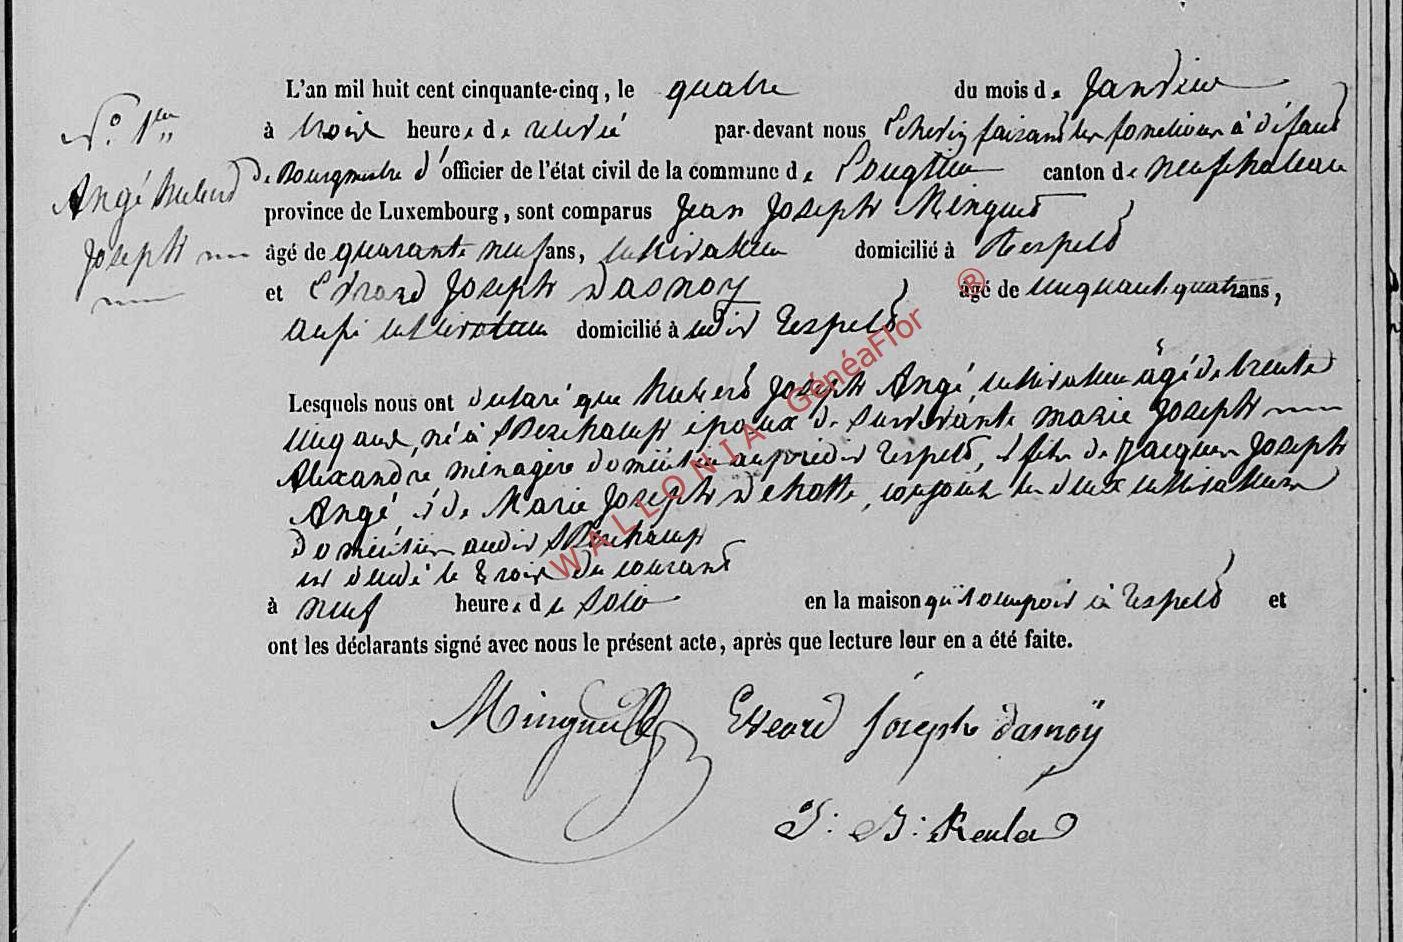 N.º 1er
Angé hubert
Joseph
L'an mil huit cent cinquante-cinq, le quatre du mois de Janvier
à trois heures de relevée par-devant nous Echevin faisant les fonctions à défaut
de Bourgmestre d'officier de l'état civil de la commune de Longlier canton de neufchateau
province de Luxembourg, sont comparus Jean Joseph Minguet
âgé de quarante neuf ans, cultivateur domicilié à Respelt
et Evrard Joseph Dasnoy âgé de cinquante quatre ans,
aussi cultivateur domicilié à udit Respelt
Lesquels nous ont declaré que hubert Joseph Angé, cultivateur âgé de trente
cinq ans, né à époux de survivante marie Joseph
Alexandre ménagère domiciliée au prédit Respelt, et fils de Jacques Joseph
Angé, et de Marie Joseph conjoints les deux cultivateurs
Domiciliés audit
est decedé le trois du courant
à neuf heures de soir en la maison qu'il occupoit à Respelt et
ont les déclarants signé avec nous le présent acte, après que lecture leur en a été faite.
Evrard Joseph dasnoÿ
J: B:
WALLONIA GénéaFlor ®